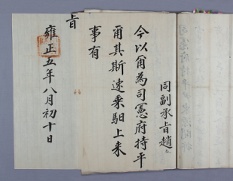 同副承旨趙
今以爾為司憲府持平
爾其斯速乘馹上來
事有
旨
雍正五年八月初十日